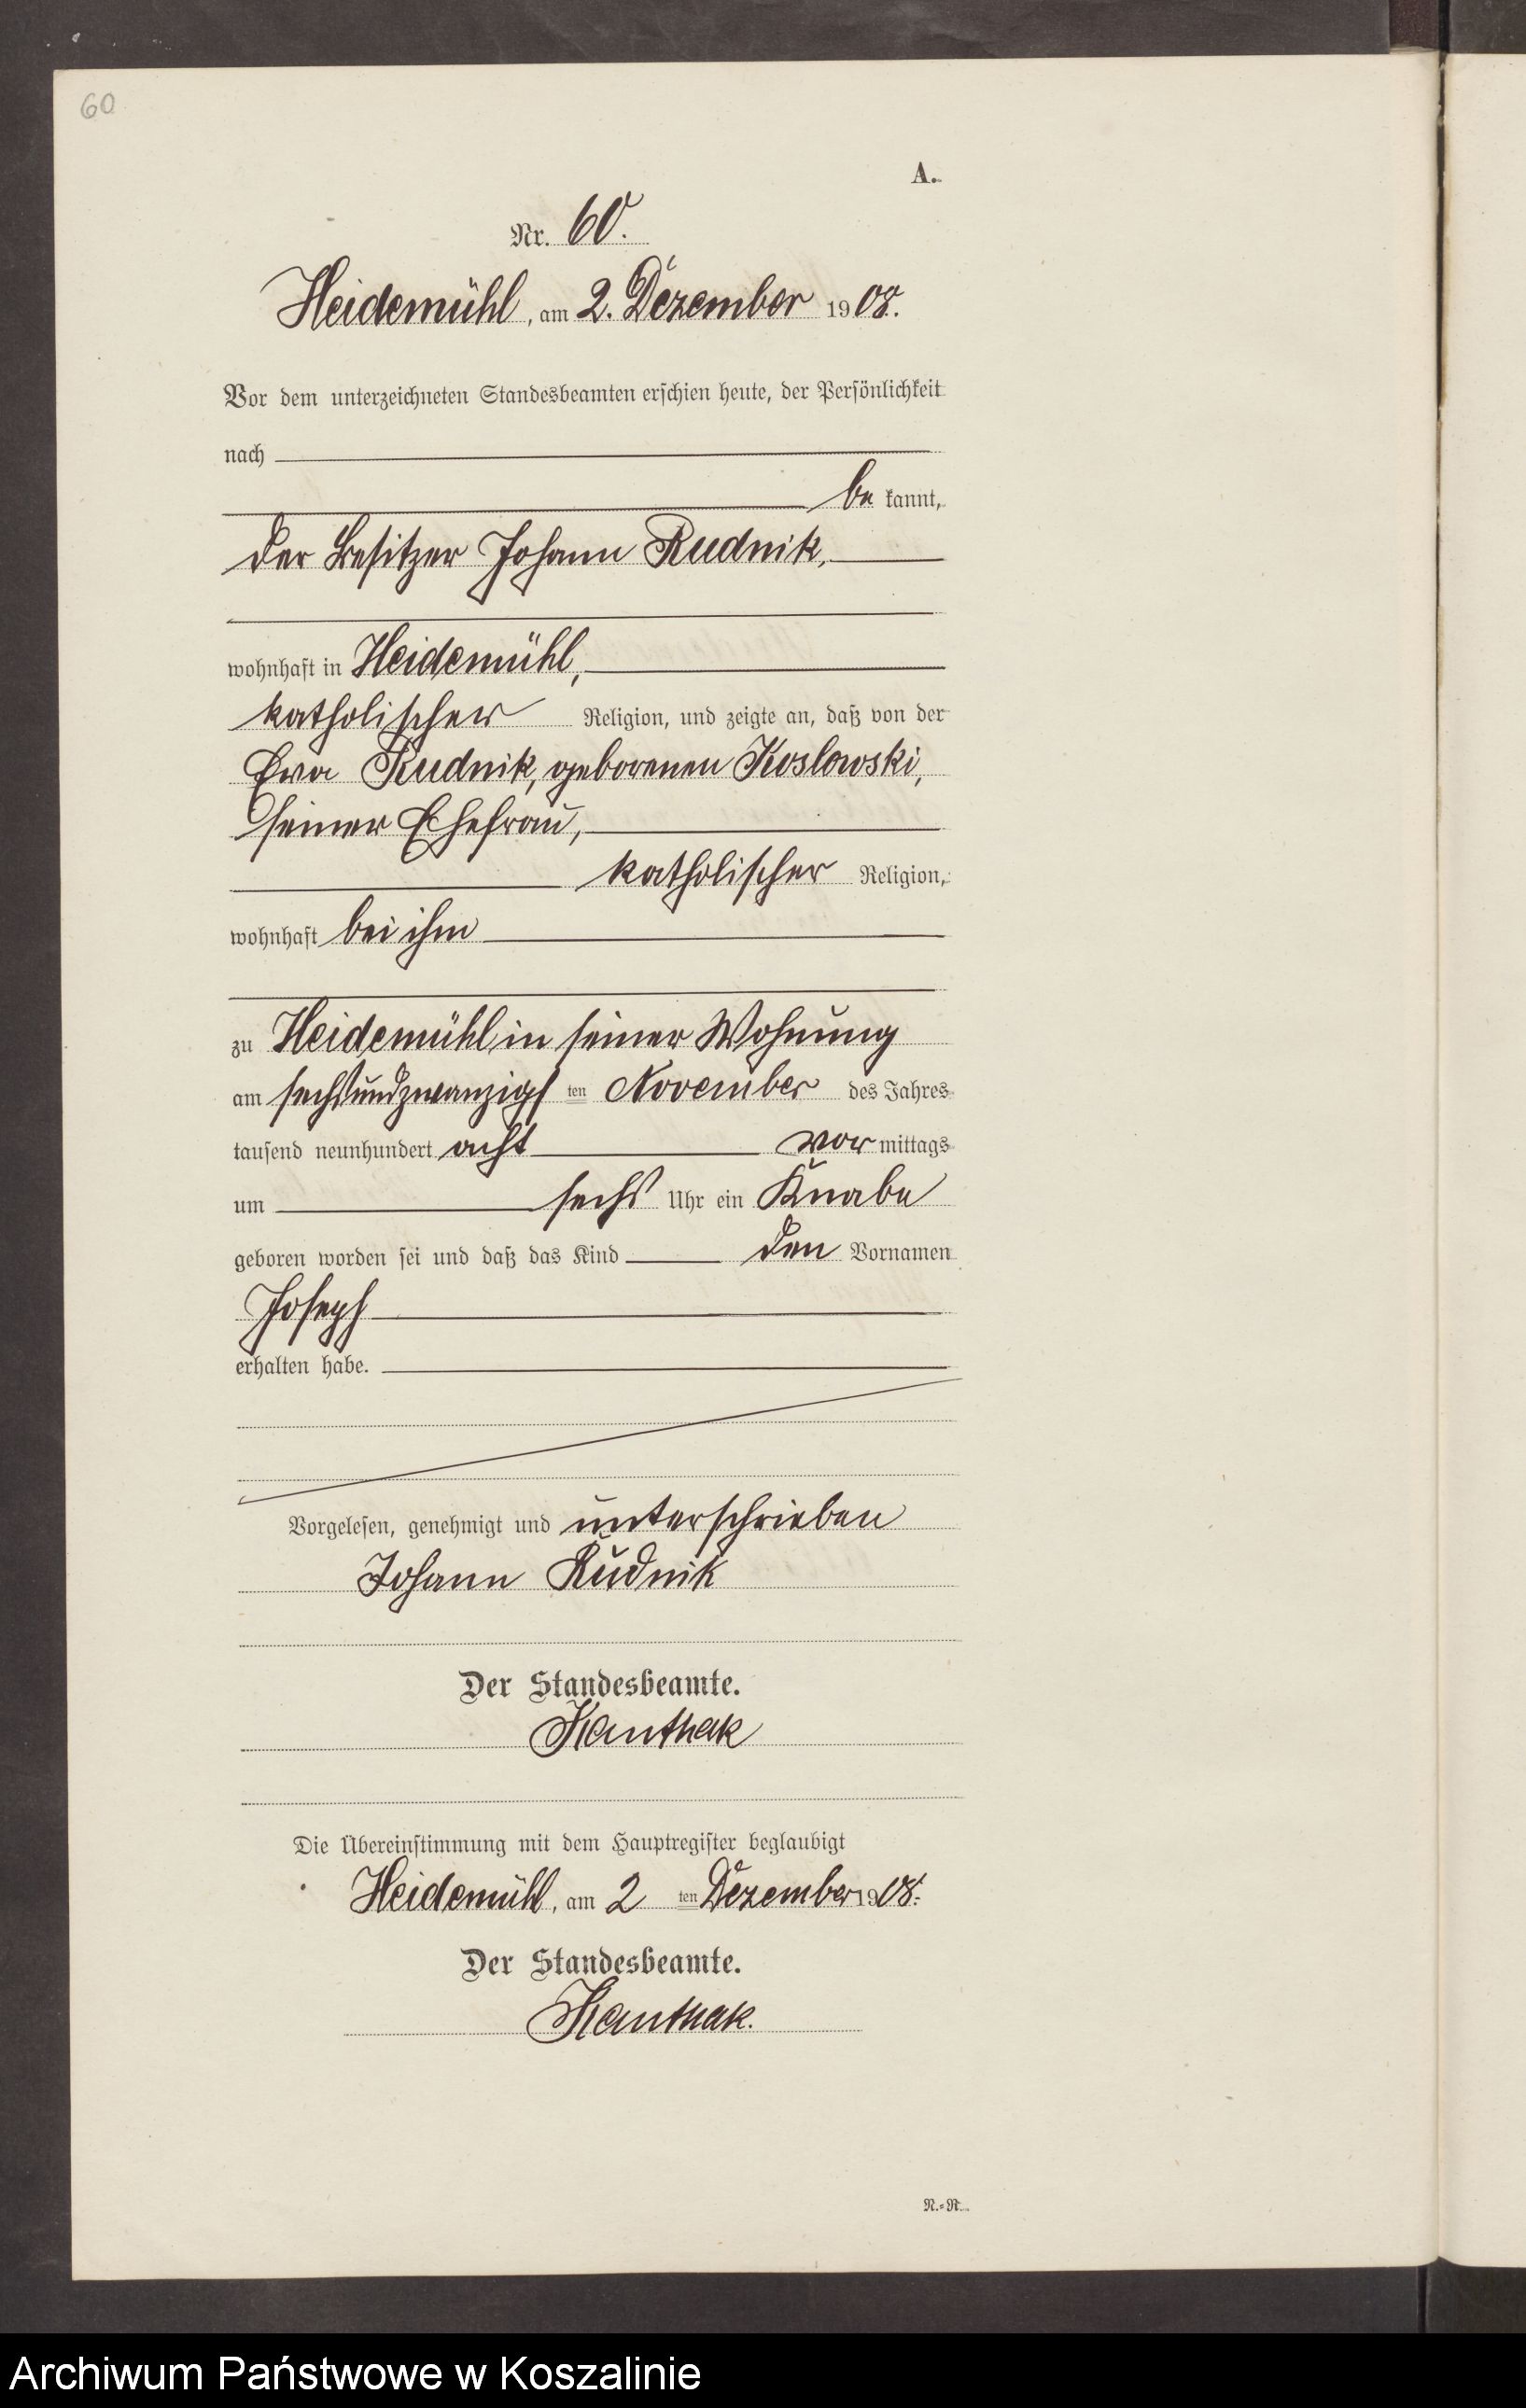 60
A.
Nr. 60.
Heidemühl, am 2. Dezember 1908.
Vor dem unterzeichneten Standesbeamten erschien heute, der Persönlichkeit
nach
be kannt,
der Besitzer Johann Rudnik,
wohnhaft in Heidemühl,
katholischer Religion, und zeigte an, daß von der
Eva Rudnik, geborenen Koslowski,
seiner Ehefrau,
katholischer Religion,
wohnhaft bei ihm
zu Heidemühl in seiner Wohnung
am sechsundzwanzigsten November des Jahres
tausend neunhundert acht vor mittags
um sechs Uhr ein Knabe
geboren worden sei und daß das Kind den Vornamen
Joseph
erhalten habe.
Vorgelesen, genehmigt und unterschrieben
Johann Rudnik
Der Standesbeamte.
Kanthak
Die Übereinstimmung mit dem Hauptregister beglaubigt
Heidemühl, am 2 ten Dezember 1908.
Der Standesbeamte.
Kanthak.
N.=R.
Archiwum Państwowe w Koszalinie